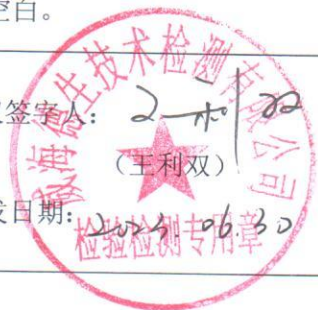 空白。
签字人：王利双
（王利双）
发日期：2023.06.30
威海德生技术检测有限公司
检验检测专用章